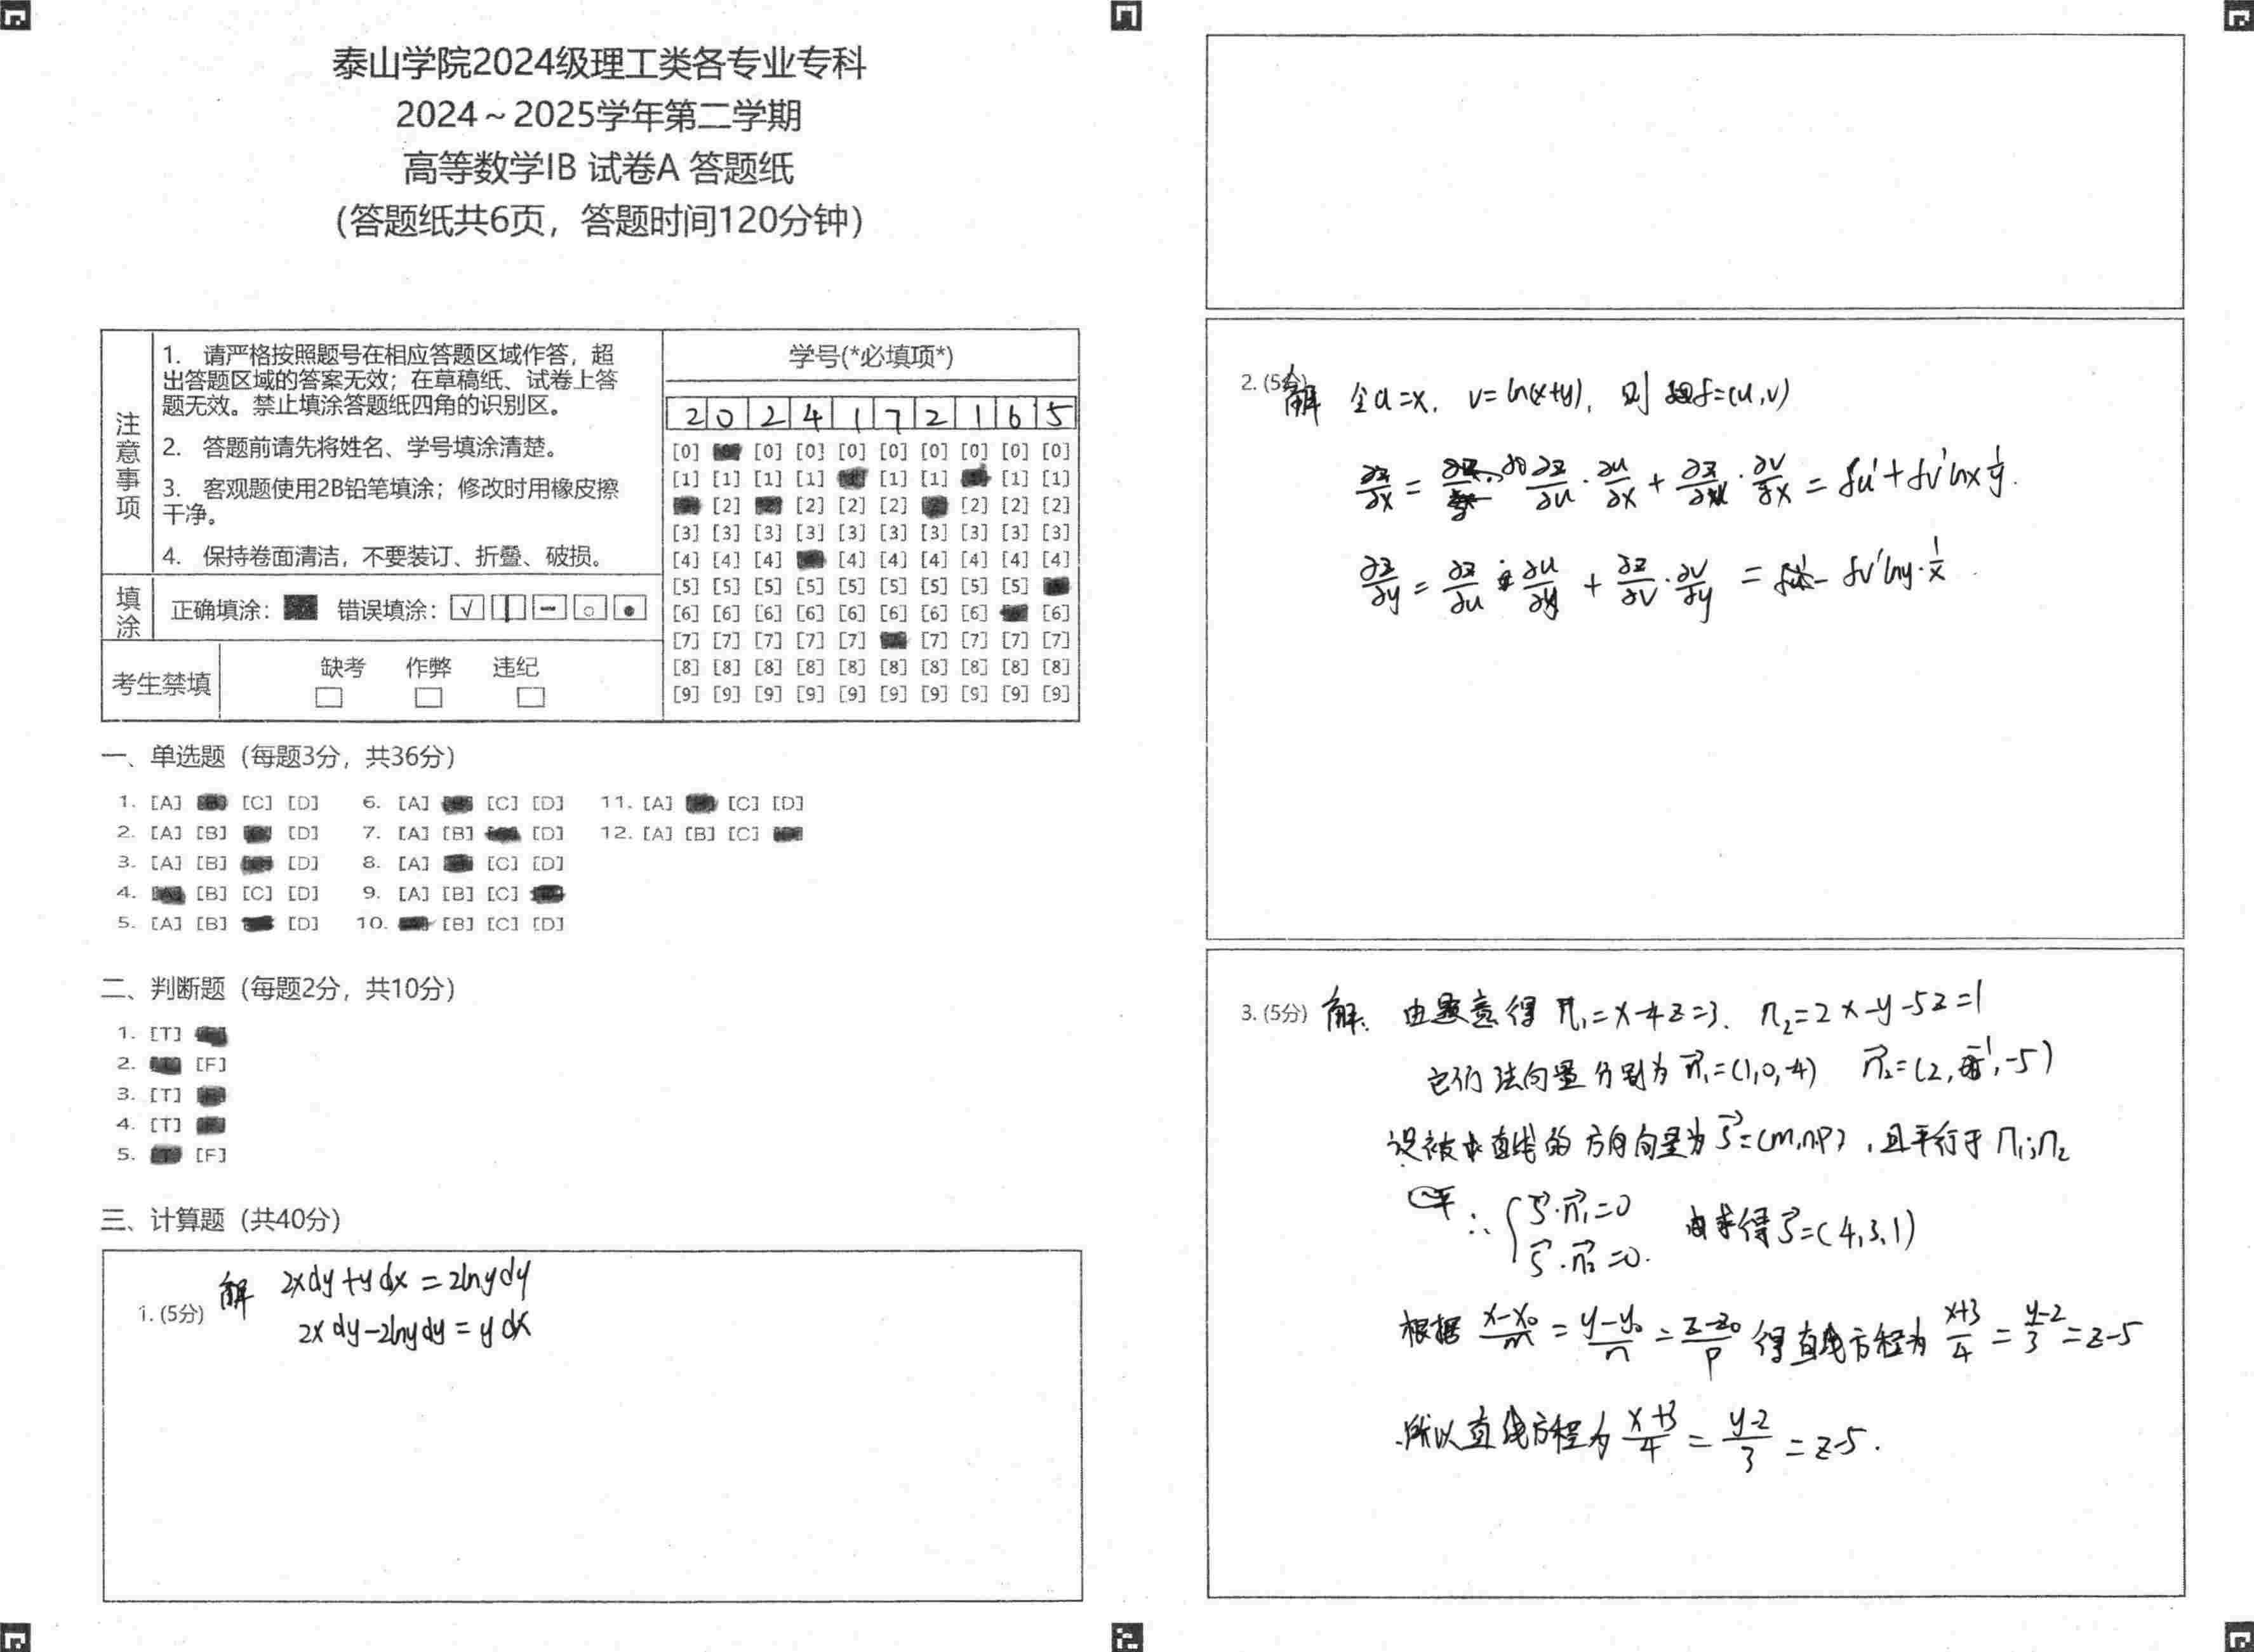 泰山学院2024级理工类各专业专科
2024～2025学年第二学期
高等数学IB 试卷A 答题纸
（答题纸共6页，答题时间120分钟）
注意事项
1. 请严格按照题号在相应答题区域作答，超
出答题区域的答案无效；在草稿纸、试卷上答
题无效。禁止填涂答题纸四角的识别区。
2. 答题前请先将姓名、学号填涂清楚。
3. 客观题使用2B铅笔填涂；修改时用橡皮擦
干净。
4. 保持卷面清洁，不要装订、折叠、破损。
填涂
正确填涂： 错误填涂：
考生禁填
缺考 作弊 违纪
学号(*必填项*)
2 0 2 4 1 7 2 1 6 5
[0] [0] [0] [0] [0] [0] [0] [0] [0]
[1] [1] [1] [1] [1] [1] [1] [1]
[2] [2] [2] [2] [2] [2] [2]
[3] [3] [3] [3] [3] [3] [3] [3] [3] [3]
[4] [4] [4] [4] [4] [4] [4] [4] [4]
[5] [5] [5] [5] [5] [5] [5] [5] [5]
[6] [6] [6] [6] [6] [6] [6] [6] [6]
[7] [7] [7] [7] [7] [7] [7] [7] [7]
[8] [8] [8] [8] [8] [8] [8] [8] [8] [8]
[9] [9] [9] [9] [9] [9] [9] [9] [9] [9]
一、单选题（每题3分，共36分）
1. [A] [C] [D] 6. [A] [C] [D] 11. [A] [C] [D]
2. [A] [B] [D] 7. [A] [B] [D] 12. [A] [B] [C]
3. [A] [B] [D] 8. [A] [C] [D]
4. [B] [C] [D] 9. [A] [B] [C]
5. [A] [B] [D] 10. [B] [C] [D]
二、判断题（每题2分，共10分）
1. [T]
2. [F]
3. [T]
4. [T]
5. [F]
三、计算题（共40分）
1. (5分) 解 2xdy+ydx=2lnydy
2xdy-2lnydy=ydx
2. (5分) 解 令u=x, v=ln(x+y), 则 f=(u,v)
∂z/∂x = ∂z/∂u · ∂u/∂x + ∂z/∂v · ∂v/∂x = fu' + fv' lnx 1/y.
∂z/∂y = ∂z/∂u · ∂u/∂y + ∂z/∂v · ∂v/∂y = fv' lny · 1/x
3. (5分) 解. 由题意得 π₁=x-4z=3. π₂=2x-y-5z=1
它们法向量分别为 n⃗₁=(1,0,-4) n⃗₂=(2,-1,-5)
设被求直线的方向向量为 s⃗=(m,n,p), 且平行于 π₁;π₂
∴ { s⃗·n⃗₁=0 求得 s⃗=(4,3,1)
s⃗·n⃗₂=0.
根据 (x-x₀)/m = (y-y₀)/n = (z-z₀)/p 得直线方程为 (x+3)/4 = (y-2)/3 = z-5
所以直线方程为 (x+3)/4 = (y-2)/3 = z-5.